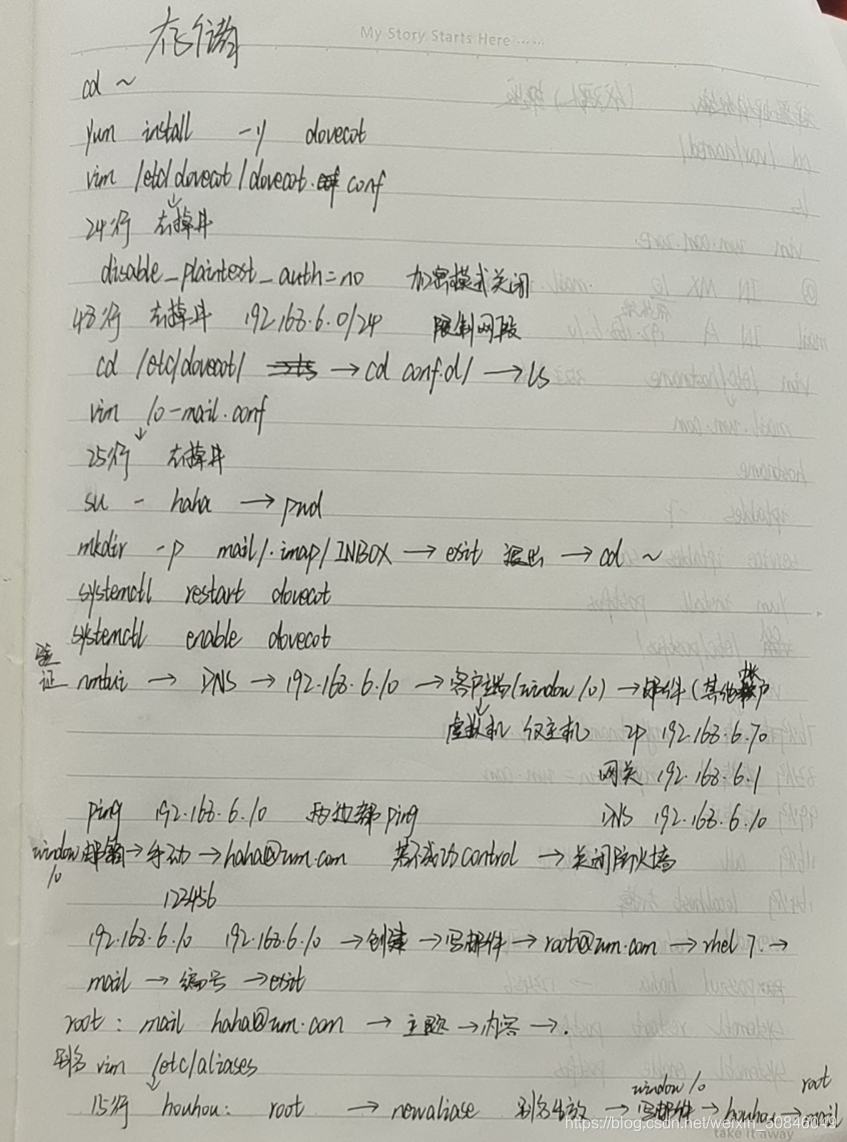 My Story Starts Here ······
存储
cd ~
yum install -y dovecot
vim /etc/dovecot/dovecot.conf
24行 去掉井
disable_plaintext_auth=no 加密模式关闭
48行 去掉井 192.168.6.0/24 限制网段
cd /etc/dovecot/ → cd conf.d/ → ls
vim 10-mail.conf
25行 去掉井
su - haha → pwd
mkdir -p mail/.imap/INBOX → exit 退出 → cd ~
systemctl restart dovecot
systemctl enable dovecot
验证 nmtui → DNS → 192.168.6.10 → 客户端(window 10) → 邮件(其他账户
虚拟机 仅主机 IP 192.168.6.70
网关 192.168.6.1
ping 192.168.6.10 两边都ping DNS 192.168.6.10
window 10 邮箱 → 手动 → haha@um.com 若不成功control → 关闭防火墙
123456
192.168.6.10 192.168.6.10 → 创建 → 写邮件 → root@um.com → rhel 7. →
mail → 编号 → exit
root : mail haha@um.com → 主题 → 内容 → .
别名 vim /etc/aliases
15行 houhou: root → newaliase 别名生效 → window 10 写邮件 → houhou → root mail
https://blog.csdn.net/weixin_30846049
take it away